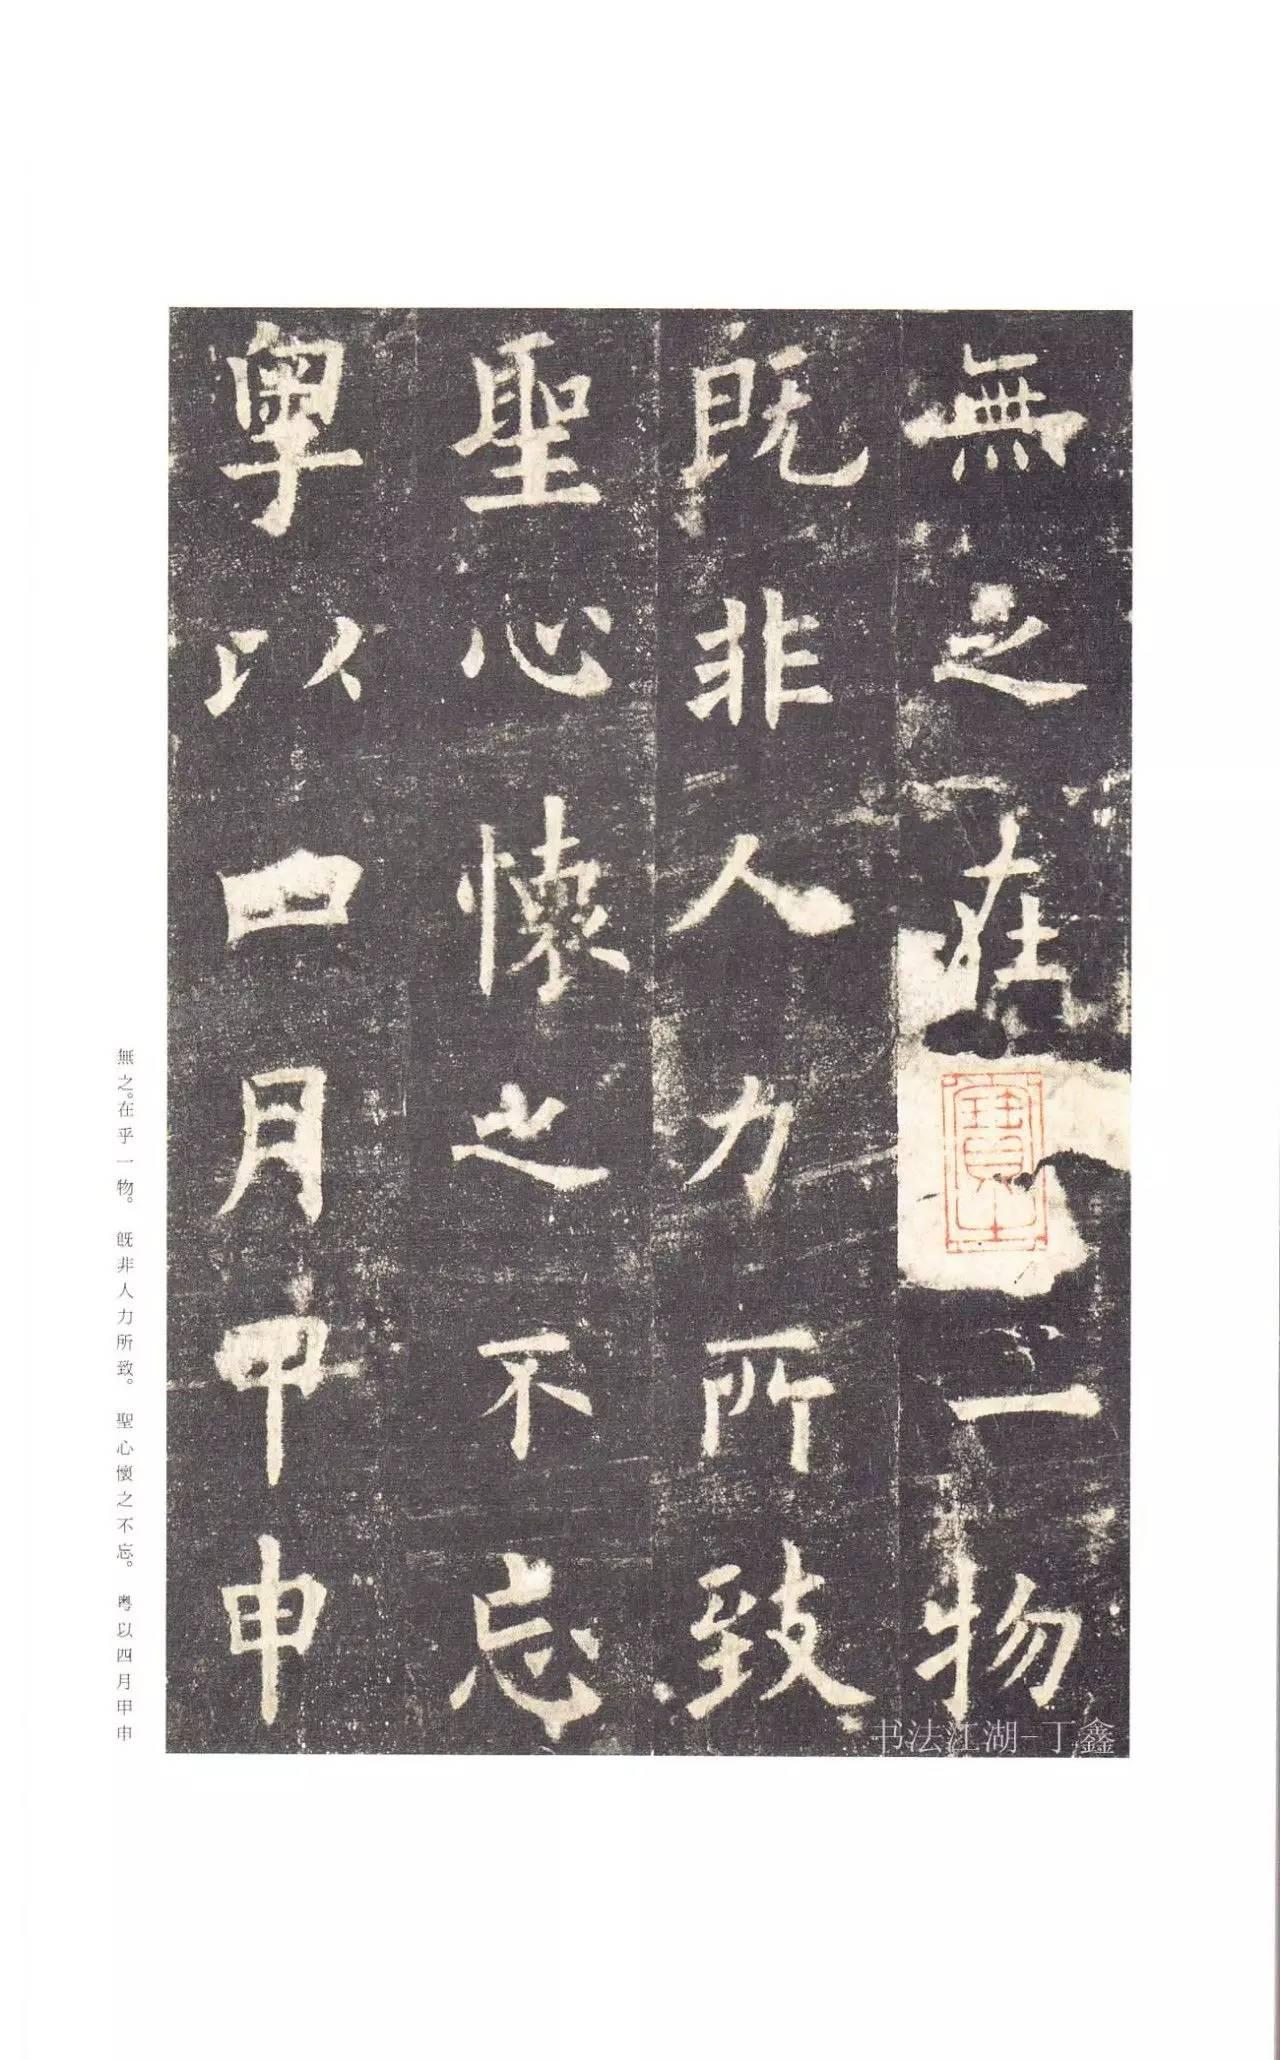 無之在一物
既非人力所致
聖心懷之不忘
粤以四月甲申
無之。在乎一物。既非人力所致。聖心懷之不忘。粤以四月甲申
书法江湖-丁鑫